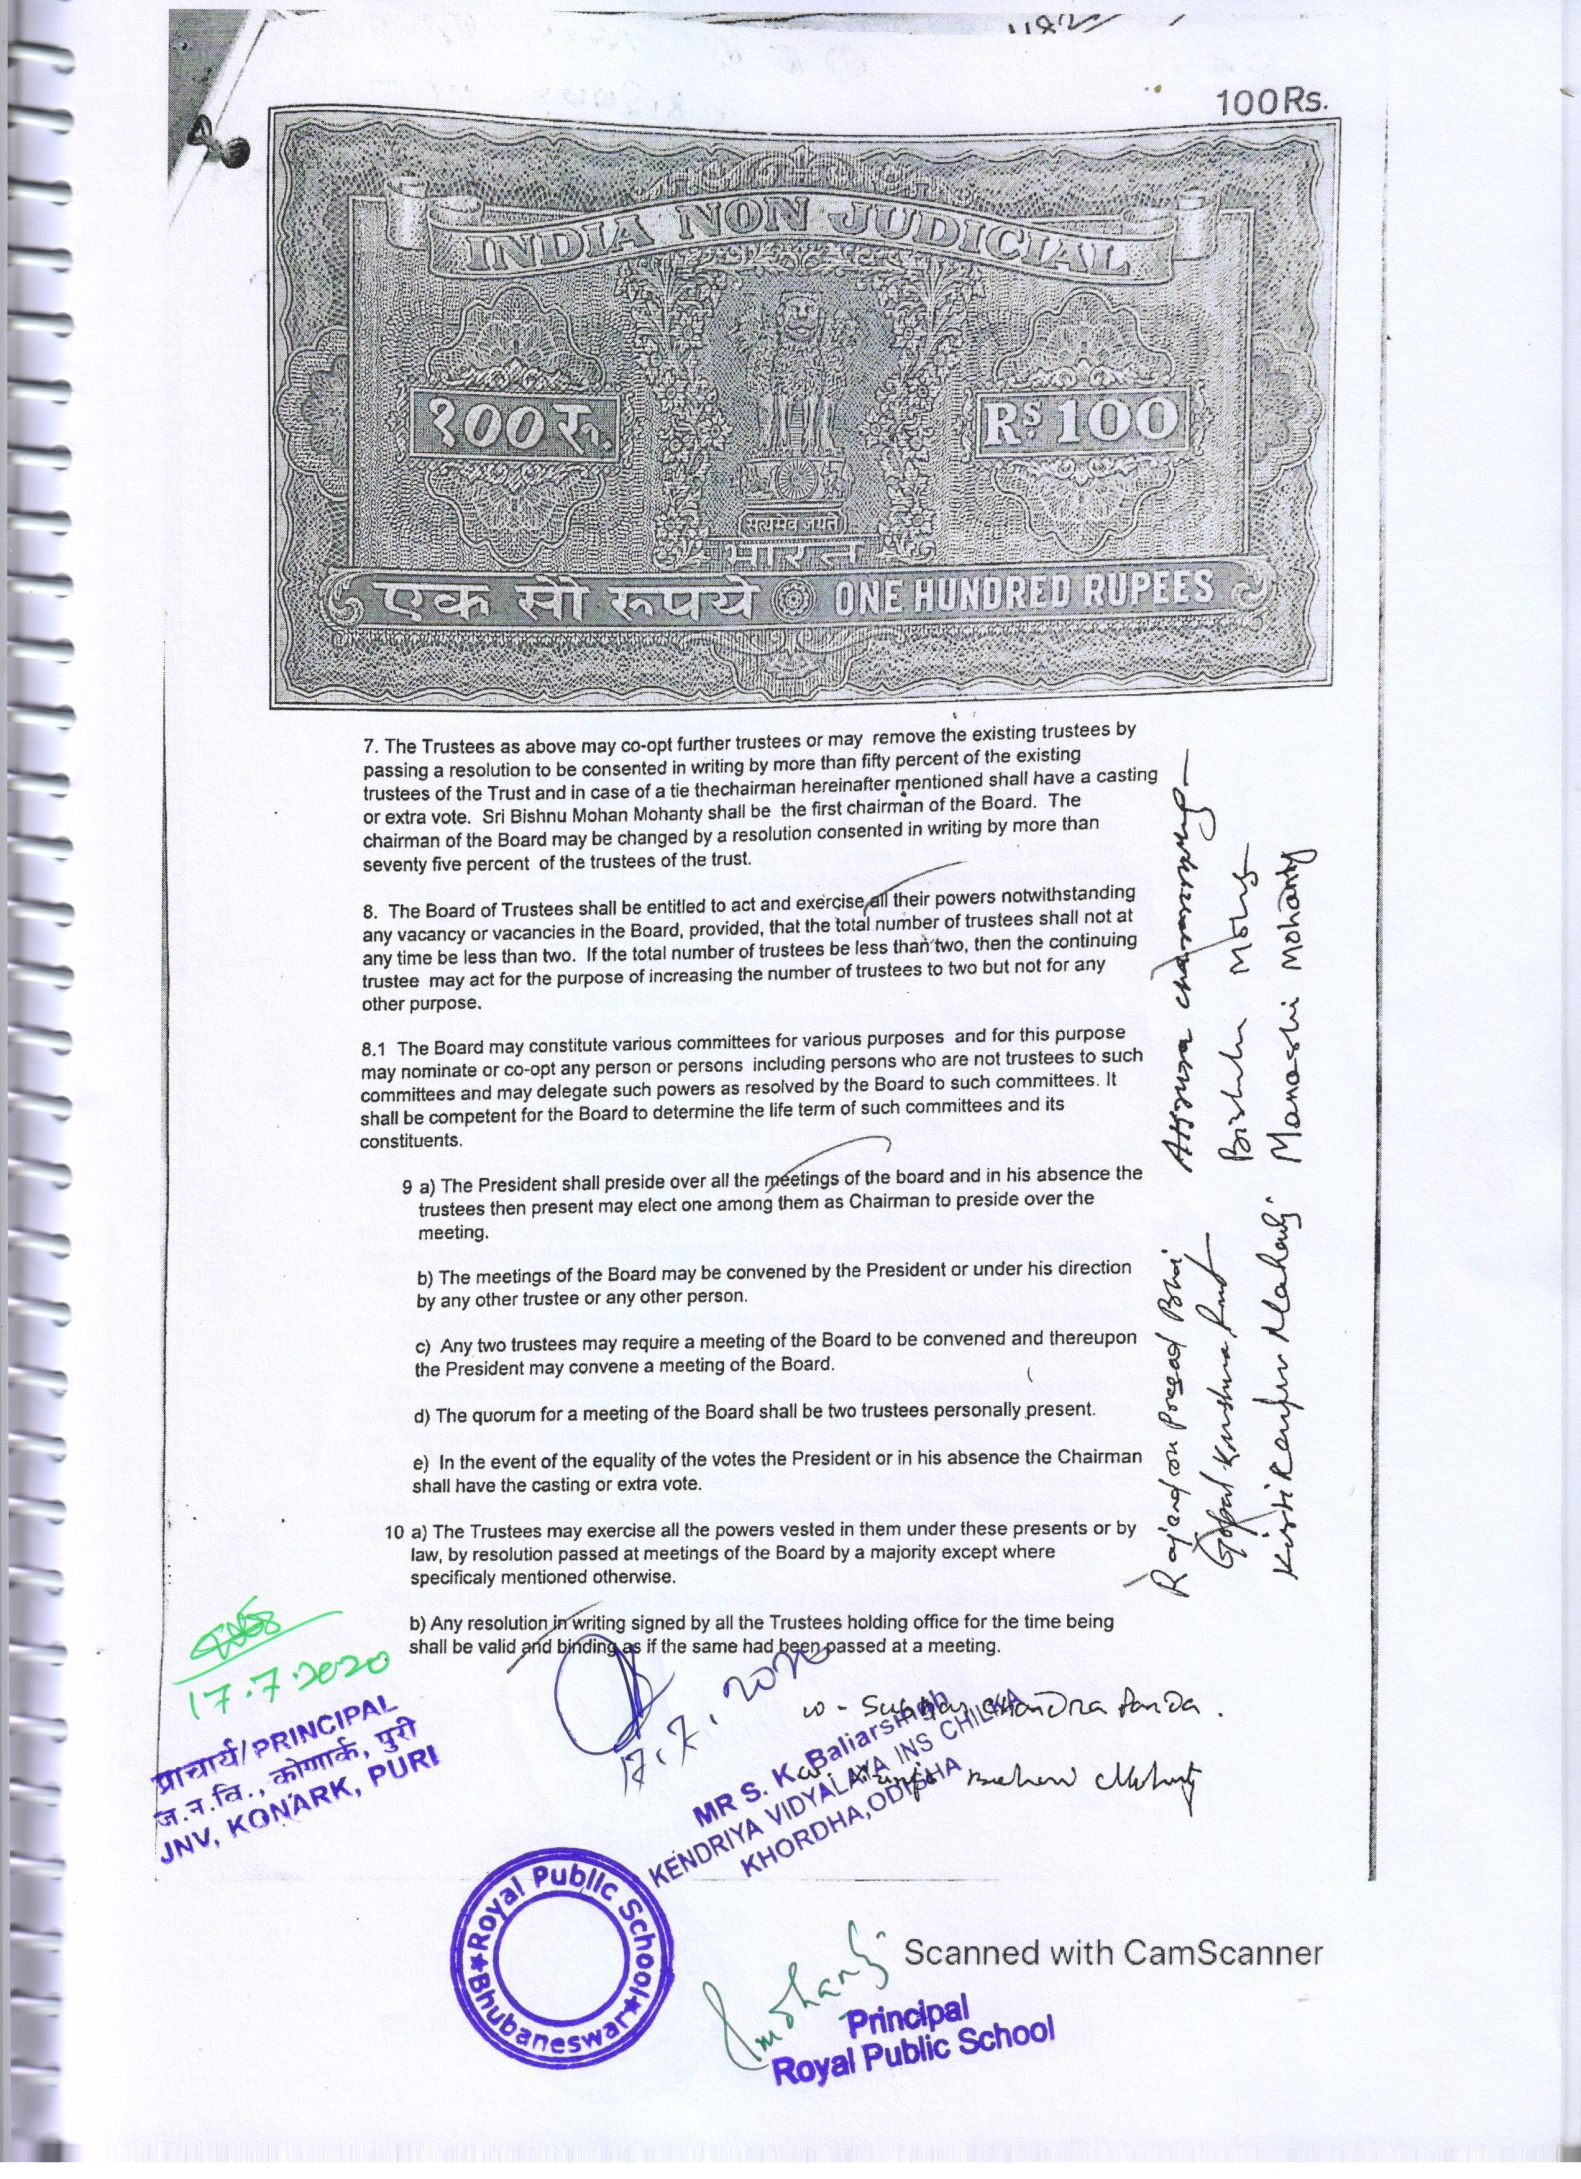 100Rs.
INDIA NON JUDICIAL
१००रु.
RS. 100
सत्यमेव जयते
भारत
एक सौ रुपये ONE HUNDRED RUPEES
7. The Trustees as above may co-opt further trustees or may remove the existing trustees by
passing a resolution to be consented in writing by more than fifty percent of the existing
trustees of the Trust and in case of a tie thechairman hereinafter mentioned shall have a casting
or extra vote. Sri Bishnu Mohan Mohanty shall be the first chairman of the Board. The
chairman of the Board may be changed by a resolution consented in writing by more than
seventy five percent of the trustees of the trust.
8. The Board of Trustees shall be entitled to act and exercise all their powers notwithstanding
any vacancy or vacancies in the Board, provided, that the total number of trustees shall not at
any time be less than two. If the total number of trustees be less than two, then the continuing
trustee may act for the purpose of increasing the number of trustees to two but not for any
other purpose.
8.1 The Board may constitute various committees for various purposes and for this purpose
may nominate or co-opt any person or persons including persons who are not trustees to such
committees and may delegate such powers as resolved by the Board to such committees. It
shall be competent for the Board to determine the life term of such committees and its
constituents.
9 a) The President shall preside over all the meetings of the board and in his absence the
trustees then present may elect one among them as Chairman to preside over the
meeting.
b) The meetings of the Board may be convened by the President or under his direction
by any other trustee or any other person.
c) Any two trustees may require a meeting of the Board to be convened and thereupon
the President may convene a meeting of the Board.
d) The quorum for a meeting of the Board shall be two trustees personally present.
e) In the event of the equality of the votes the President or in his absence the Chairman
shall have the casting or extra vote.
10 a) The Trustees may exercise all the powers vested in them under these presents or by
law, by resolution passed at meetings of the Board by a majority except where
specificaly mentioned otherwise.
b) Any resolution in writing signed by all the Trustees holding office for the time being
shall be valid and binding as if the same had been passed at a meeting.
Bishnu Mohan
Manasshi Mohanty
Gopal Krushna
17.7.2020
प्राचार्य/PRINCIPAL
ज.न.वि., कोणार्क, पुरी
JNV, KONARK, PURI
17.7.2020
Chandra Panda.
MR S. K. Baliarsingh
KENDRIYA VIDYALAYA INS CHILKA
KHORDHA,ODISHA
Royal Public School
Bhubaneswar
Scanned with CamScanner
Principal
Royal Public School